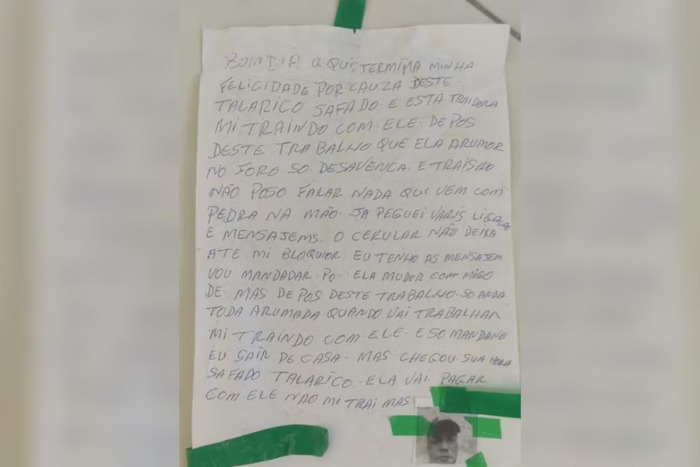 BOM DIA A QUI, TERMIMA MINHA
FELICIDADE POR CAUZA DESTE
TALARICO SAFADO E ESTA TRAIDORA
MI TRAINDO COM ELE. DEPOS
DESTE TRABALHO QUE ELA ARUMOR
NO FORO SO DESAVENCA. E TRAISÃO
NÃO POSO FALAR NADA QUI VEM COM
PEDRA NA MÃO. JA PEGUEI VARIS
E MENSAJEMS. O CERULAR NÃO DEIRA
ATE MI BLOQUIOR EU TENHO AS MENSAJEM
VOU MANDADAR PO. ELA MUDOR COM MIGO
DE. MAS DEPOS DESTE TRABALHO. SO ANDA
TODA ARUMADA QUANDO VAI TRABALHAR
MI TRAINDO COM ELE. E SO MANDANO
EU SAIR DE CASA. MAS CHEGOU SUA HORA
SAFADO TALARICO. ELA VAI PAGAR
COM ELE NÃO MI TRAI MAS